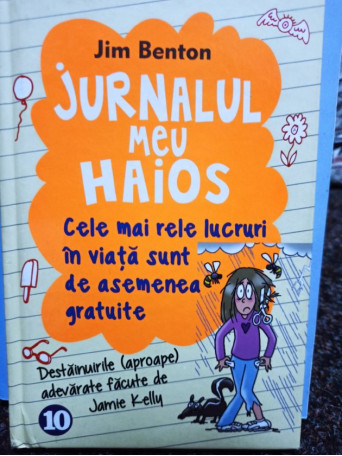 Jim Benton
JURNALUL
MEU
HAIOS
Cele mai rele lucruri
în viață sunt
de asemenea
gratuite
Destăinuirile (aproape)
adevărate făcute de
Jamie Kelly
10